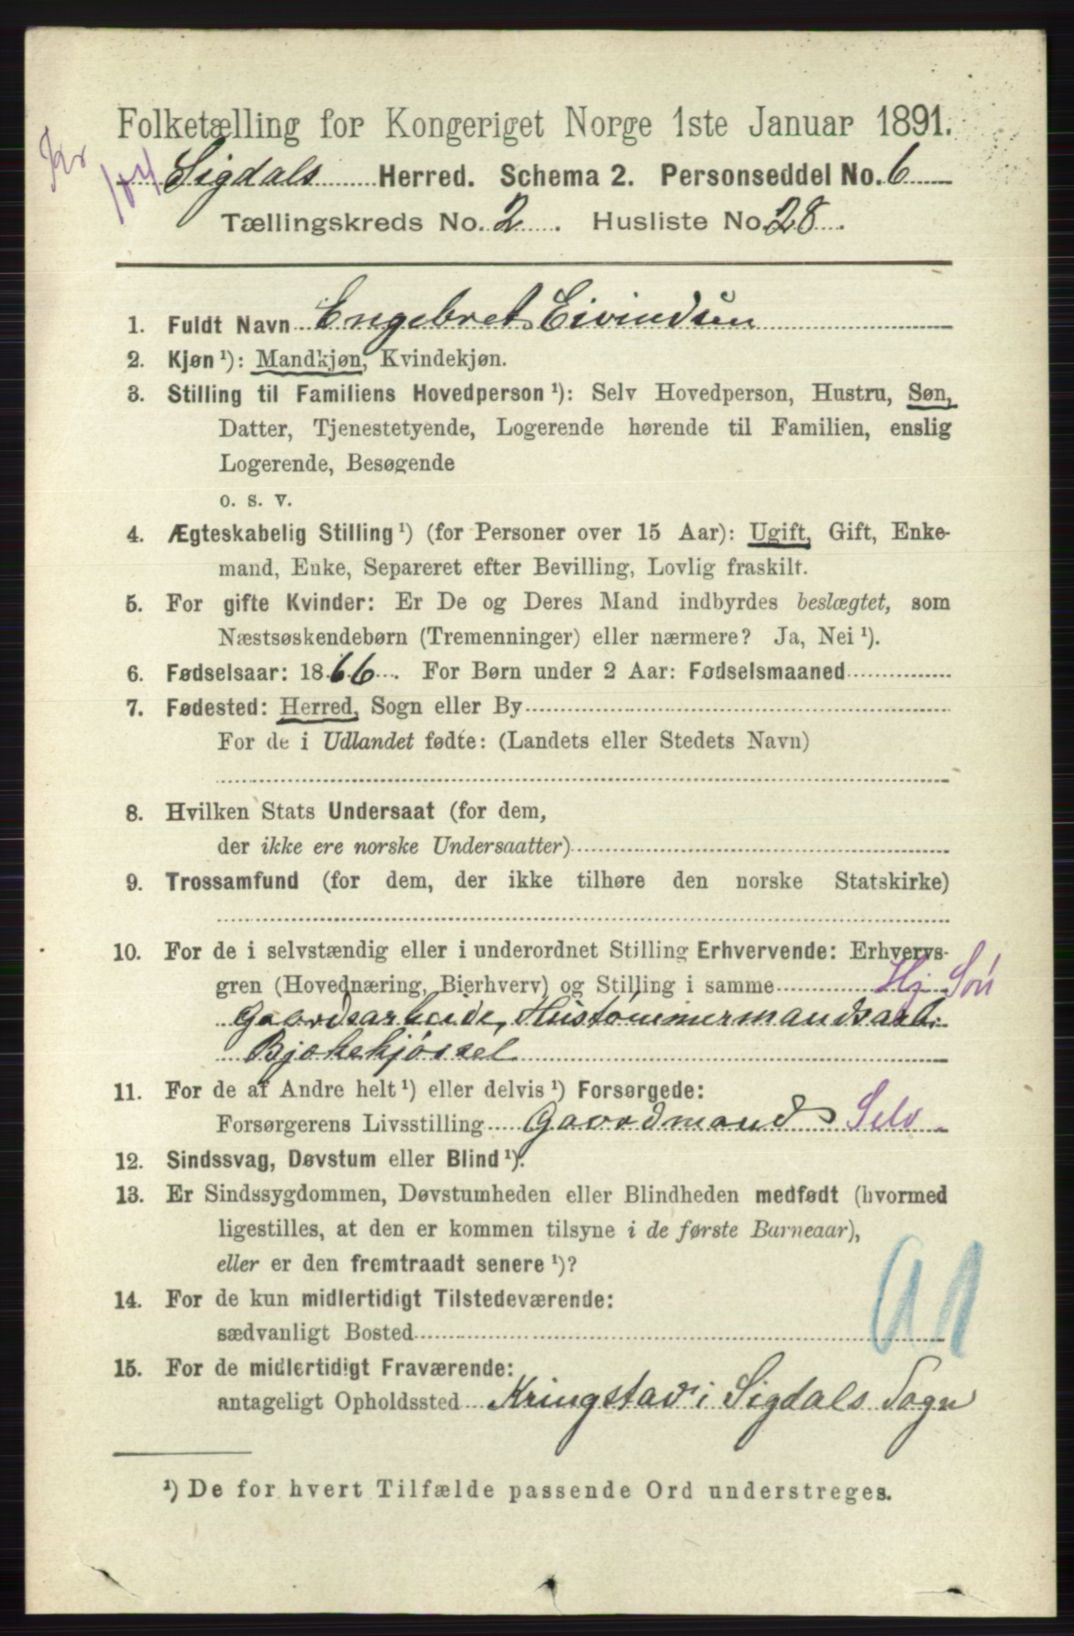 Folketælling for Kongeriget Norge 1ste Januar 1891.
Sigdals Herred. Schema 2. Personseddel No. 6
Tællingskreds No. 2. Husliste No. 28.
1. Fuldt Navn Engebret Eivindsen
2. Kjøn ¹): Mandkjøn, Kvindekjøn.
3. Stilling til Familiens Hovedperson ¹): Selv Hovedperson, Hustru, Søn,
Datter, Tjenestetyende, Logerende hørende til Familien, enslig
Logerende, Besøgende
o. s. v.
4. Ægteskabelig Stilling ¹) (for Personer over 15 Aar): Ugift, Gift, Enke-
mand, Enke, Separeret efter Bevilling, Lovlig fraskilt.
5. For gifte Kvinder: Er De og Deres Mand indbyrdes beslægtet, som
Næstsøskendebørn (Tremenninger) eller nærmere? Ja, Nei ¹).
6. Fødselsaar: 1866. For Børn under 2 Aar: Fødselsmaaned
7. Fødested: Herred, Sogn eller By
For de i Udlandet fødte: (Landets eller Stedets Navn)
8. Hvilken Stats Undersaat (for dem,
der ikke ere norske Undersaatter)
9. Trossamfund (for dem, der ikke tilhøre den norske Statskirke)
10. For de i selvstændig eller i underordnet Stilling Erhvervende: Erhvervs-
gren (Hovednæring, Bierhverv) og Stilling i samme Hj Søn
Gaardsarbeide, Hustømmermandsarb.
11. For de af Andre helt ¹) eller delvis ¹) Forsørgede:
Forsørgerens Livsstilling Gaardmand Selv
12. Sindssvag, Døvstum eller Blind ¹).
13. Er Sindssygdommen, Døvstumheden eller Blindheden medfødt (hvormed
ligestilles, at den er kommen tilsyne i de første Barneaar),
eller er den fremtraadt senere ¹)?
14. For de kun midlertidigt Tilstedeværende:
sædvanligt Bosted
15. For de midlertidigt Fraværende:
antageligt Opholdssted Kringstad i Sigdals Sogn
¹) De for hvert Tilfælde passende Ord understreges.